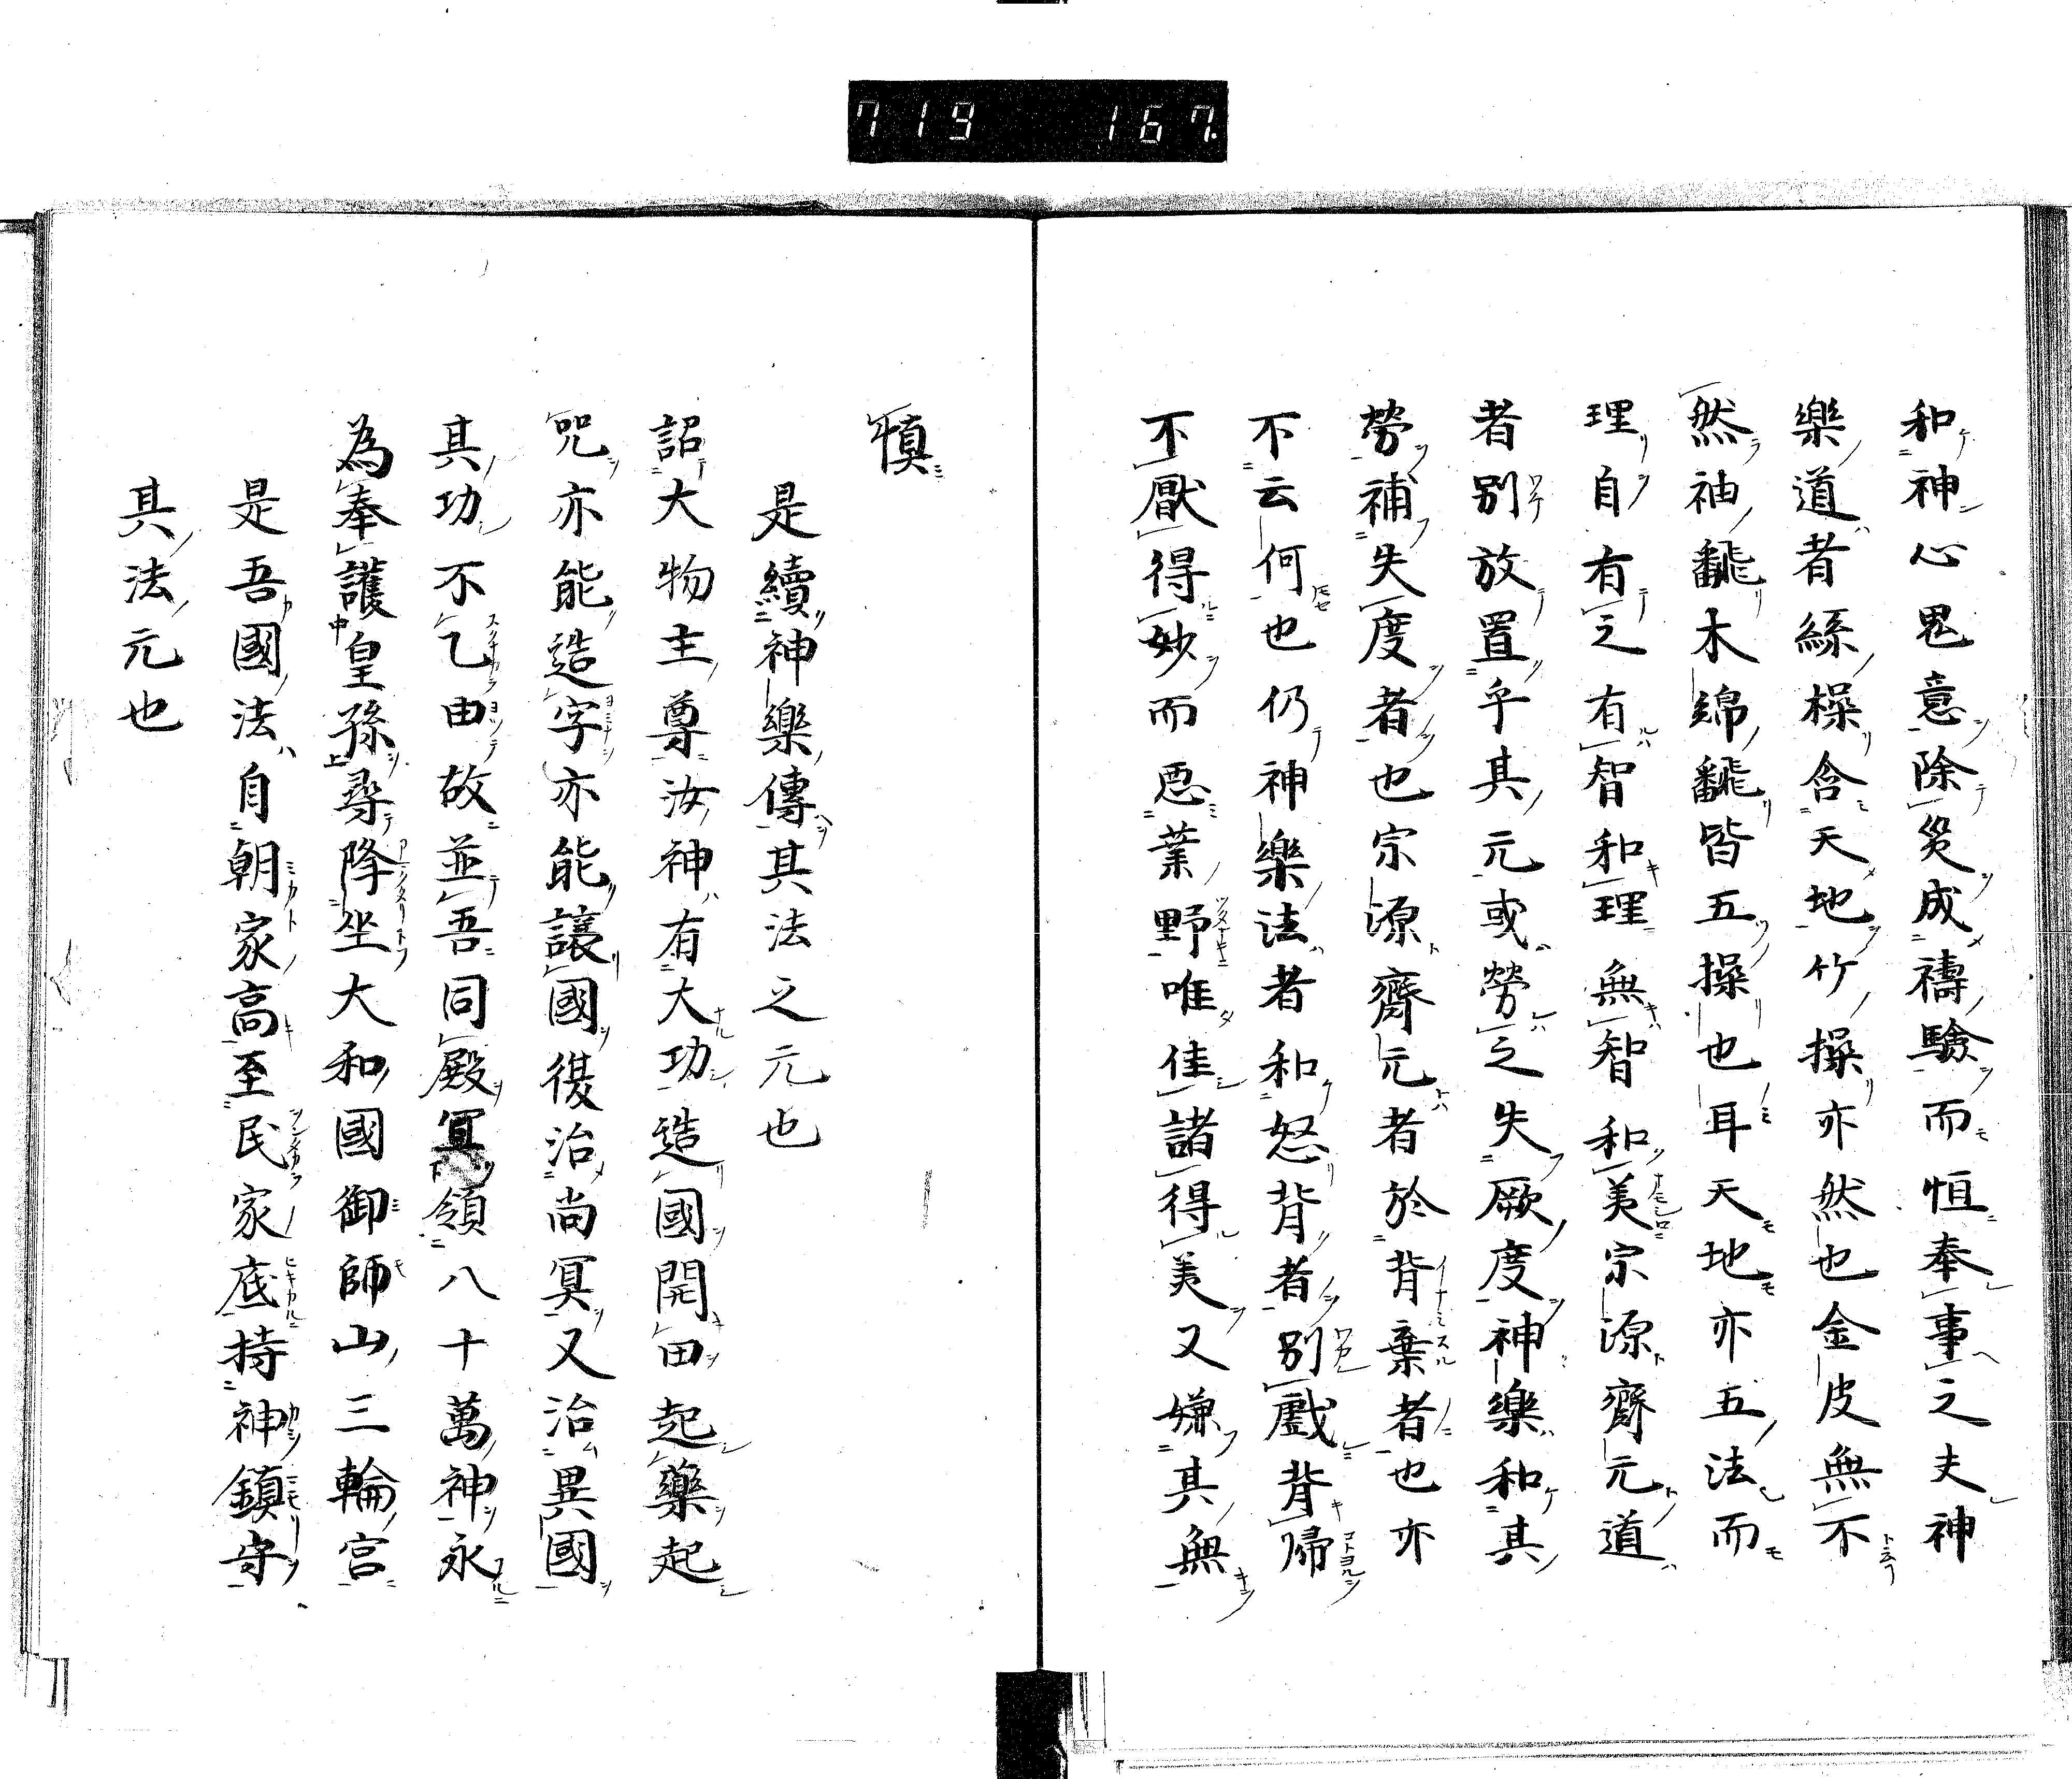 719 167
和神心鬼意除災成禱驗而恒奉事之夫神
樂道者絲操含天地竹操亦然也金皮無不
然袖飜木綿飜皆五操也耳天地亦五法而
理自有之有智和理無智和美宗源齊元道
者別放置乎其元或勞之失厥度神樂和其
勞補失度者也宗源齊元者於背棄者也亦
不云何也仍神樂法者和怒背者別戲背歸
不厭得妙而惡業野唯佳諸得美又嫌其無
慎
是續神樂傳其法之元也
詔大物主尊汝神有大功造國開田起藥起
咒亦能造字亦能讓國復治尚冥又治異國
其功不乙由故並吾同殿冥領八十萬神永
為奉護皇孫尋降坐大和國御師山三輪宮
是吾國法自朝家高至民家底持神鎮守
其法元也